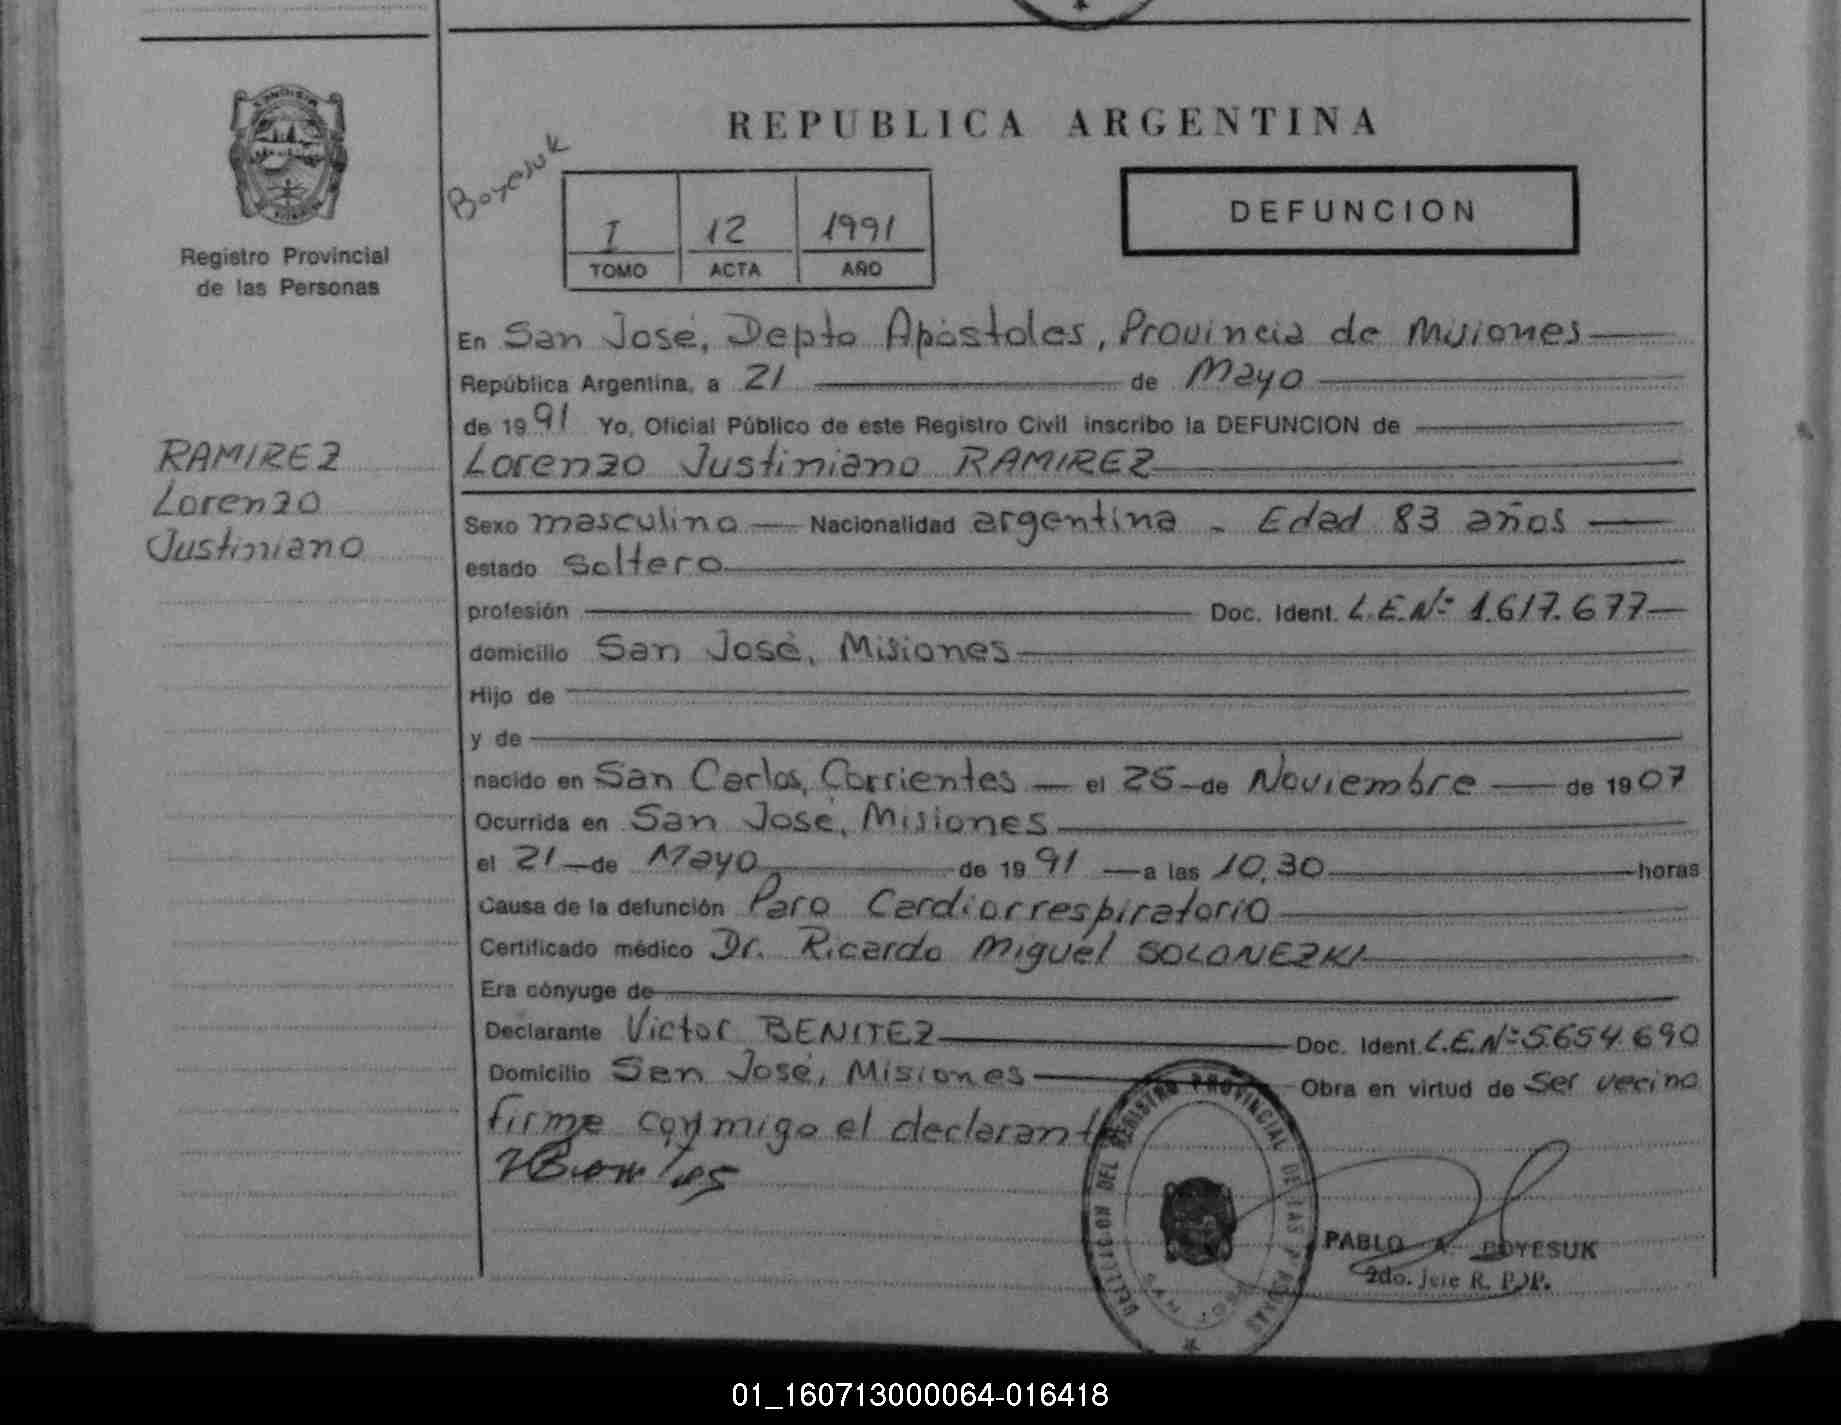 REPUBLICA ARGENTINA
Boyesuk
I 12 1991
TOMO ACTA AÑO
DEFUNCION
Registro Provincial
de las Personas
RAMIREZ
Lorenzo
Justiniano
En San José, Depto Apóstoles, Provincia de Misiones
República Argentina, a 21 de Mayo
de 1991 Yo, Oficial Público de este Registro Civil inscribo la DEFUNCION de
Lorenzo Justiniano RAMIREZ
Sexo masculino Nacionalidad argentina - Edad 83 años
estado soltero
profesión Doc. Ident. L.E.Nº 1.617.677
domicilio San José, Misiones
Hijo de
y de
nacido en San Carlos, Corrientes el 25 de Noviembre de 1907
Ocurrida en San José, Misiones
el 21 de Mayo de 1991 a las 10,30 horas
Causa de la defunción Paro Cardiorrespiratorio
Certificado médico Dr. Ricardo Miguel SOLONEZKI
Era cónyuge de
Declarante Victor BENITEZ Doc. Ident. L.E.Nº 5.654.690
Domicilio San José, Misiones Obra en virtud de ser vecino
firma conmigo el declarante
DELEGACION DEL REGISTRO PROVINCIAL DE LAS PERSONAS
SAN JOSE
PABLO A. BOYESUK
2do. Jefe R. P. P.
01_160713000064-016418